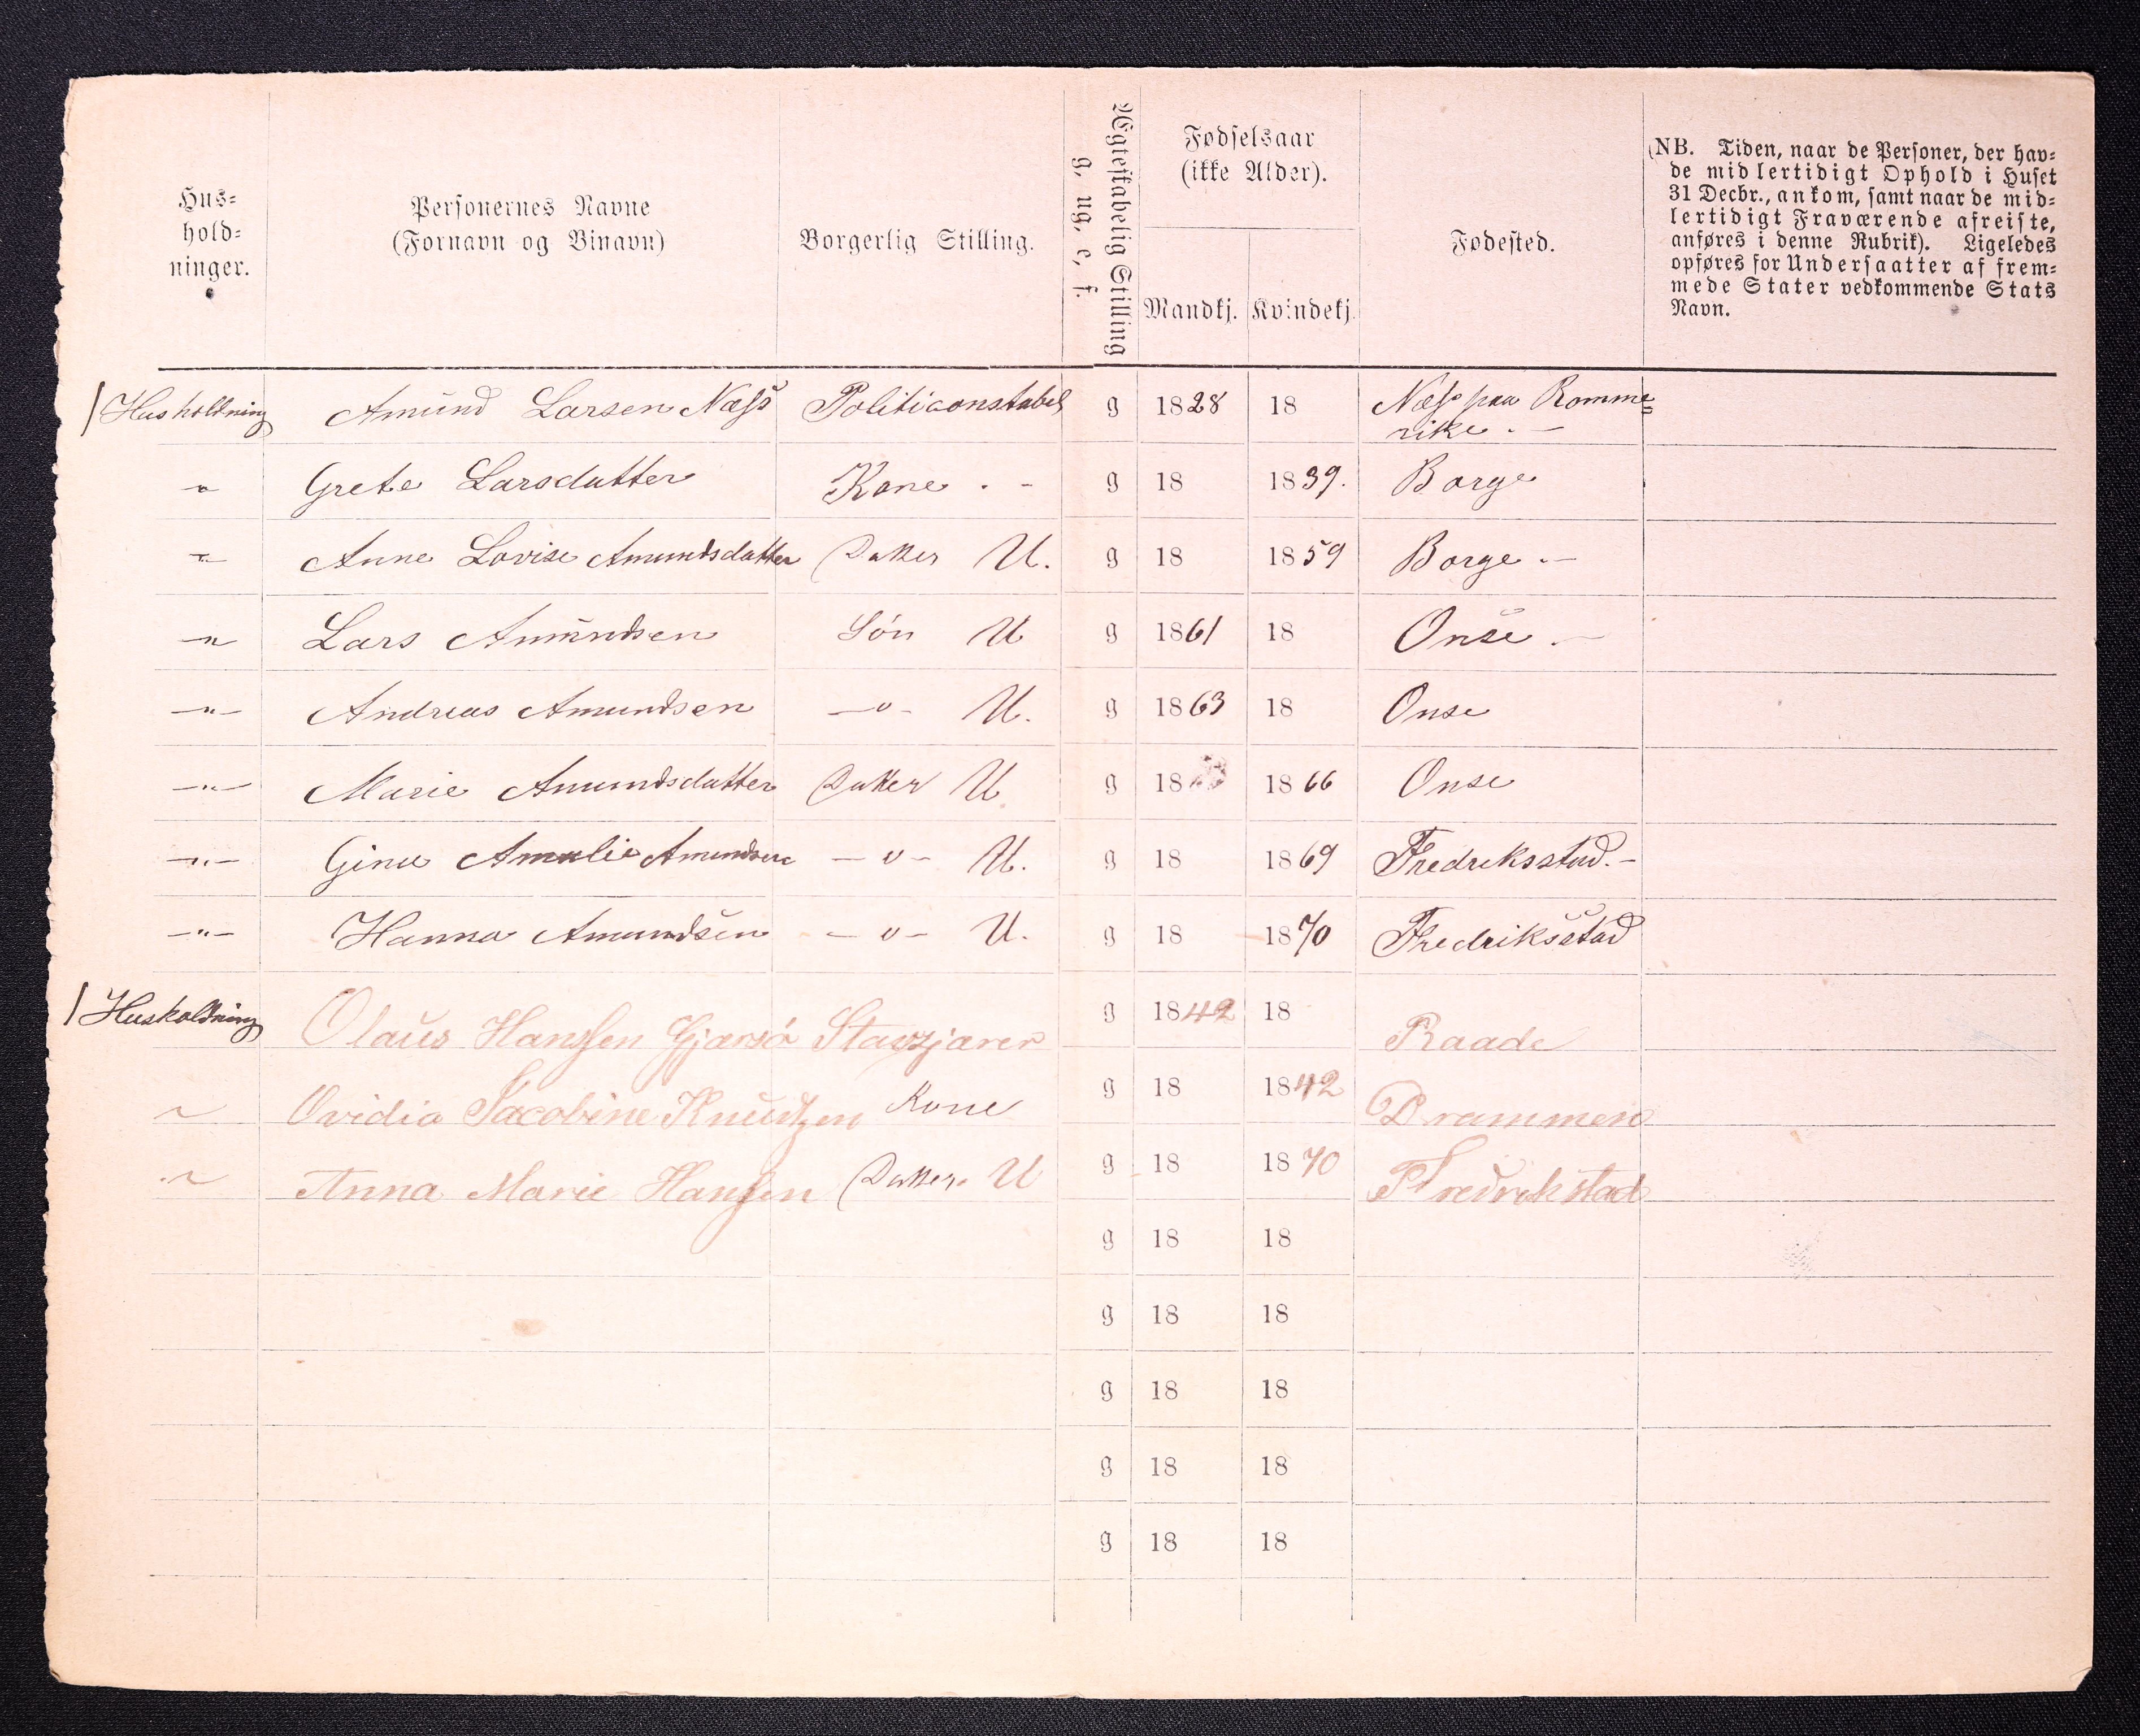 Hus=
hold=
ninger.
Personernes Navne
(Fornavn og Binavn)
Borgerlig Stilling.
Ægteskabelig Stilling
g, ug, e, f.
Fødselsaar
(ikke Alder).
Mandkj. Kvindekj.
Fødested.
(NB. Tiden, naar de Personer, der hav=
de midlertidigt Ophold i Huset
31 Decbr., ankom, samt naar de mid=
lertidigt Fraværende afreiste,
anføres i denne Rubrik). Ligeledes
opføres for Undersaatter af frem=
mede Stater vedkommende Stats
Navn.
1 Husholdning Amund Larsen Næss Politiconstabel g 1828 18 Næss paa Romme=
rike. —
" Grete Larsdatter Kone . - g 18 1839. Borge
" Anne Lovise Amundsdatter Datter U. g 18 1859 Borge . —
" Lars Amundsen Søn U g 1861 18 Onse . —
—"— Andreas Amundsen —"— U. g 1863 18 Onse
—"— Marie Amundsdatter Datter U g 18 1866 Onse
—"— Gina Amalie Amundsen —"— U. g 18 1869 Fredriksstad. —
—"— Hanna Amundsen —"— U. g 18 1870 Fredriksstad
1 Husholdning Olaus Hanssen g 1842 18 Raade
~ Ovidia Jacobine Knudtzen Kone g 18 1842 Drammen
~ Anna Marie Hanssen Datter U g 18 1870 Fredrikstad
g 18 18
g 18 18
g 18 18
g 18 18
g 18 18